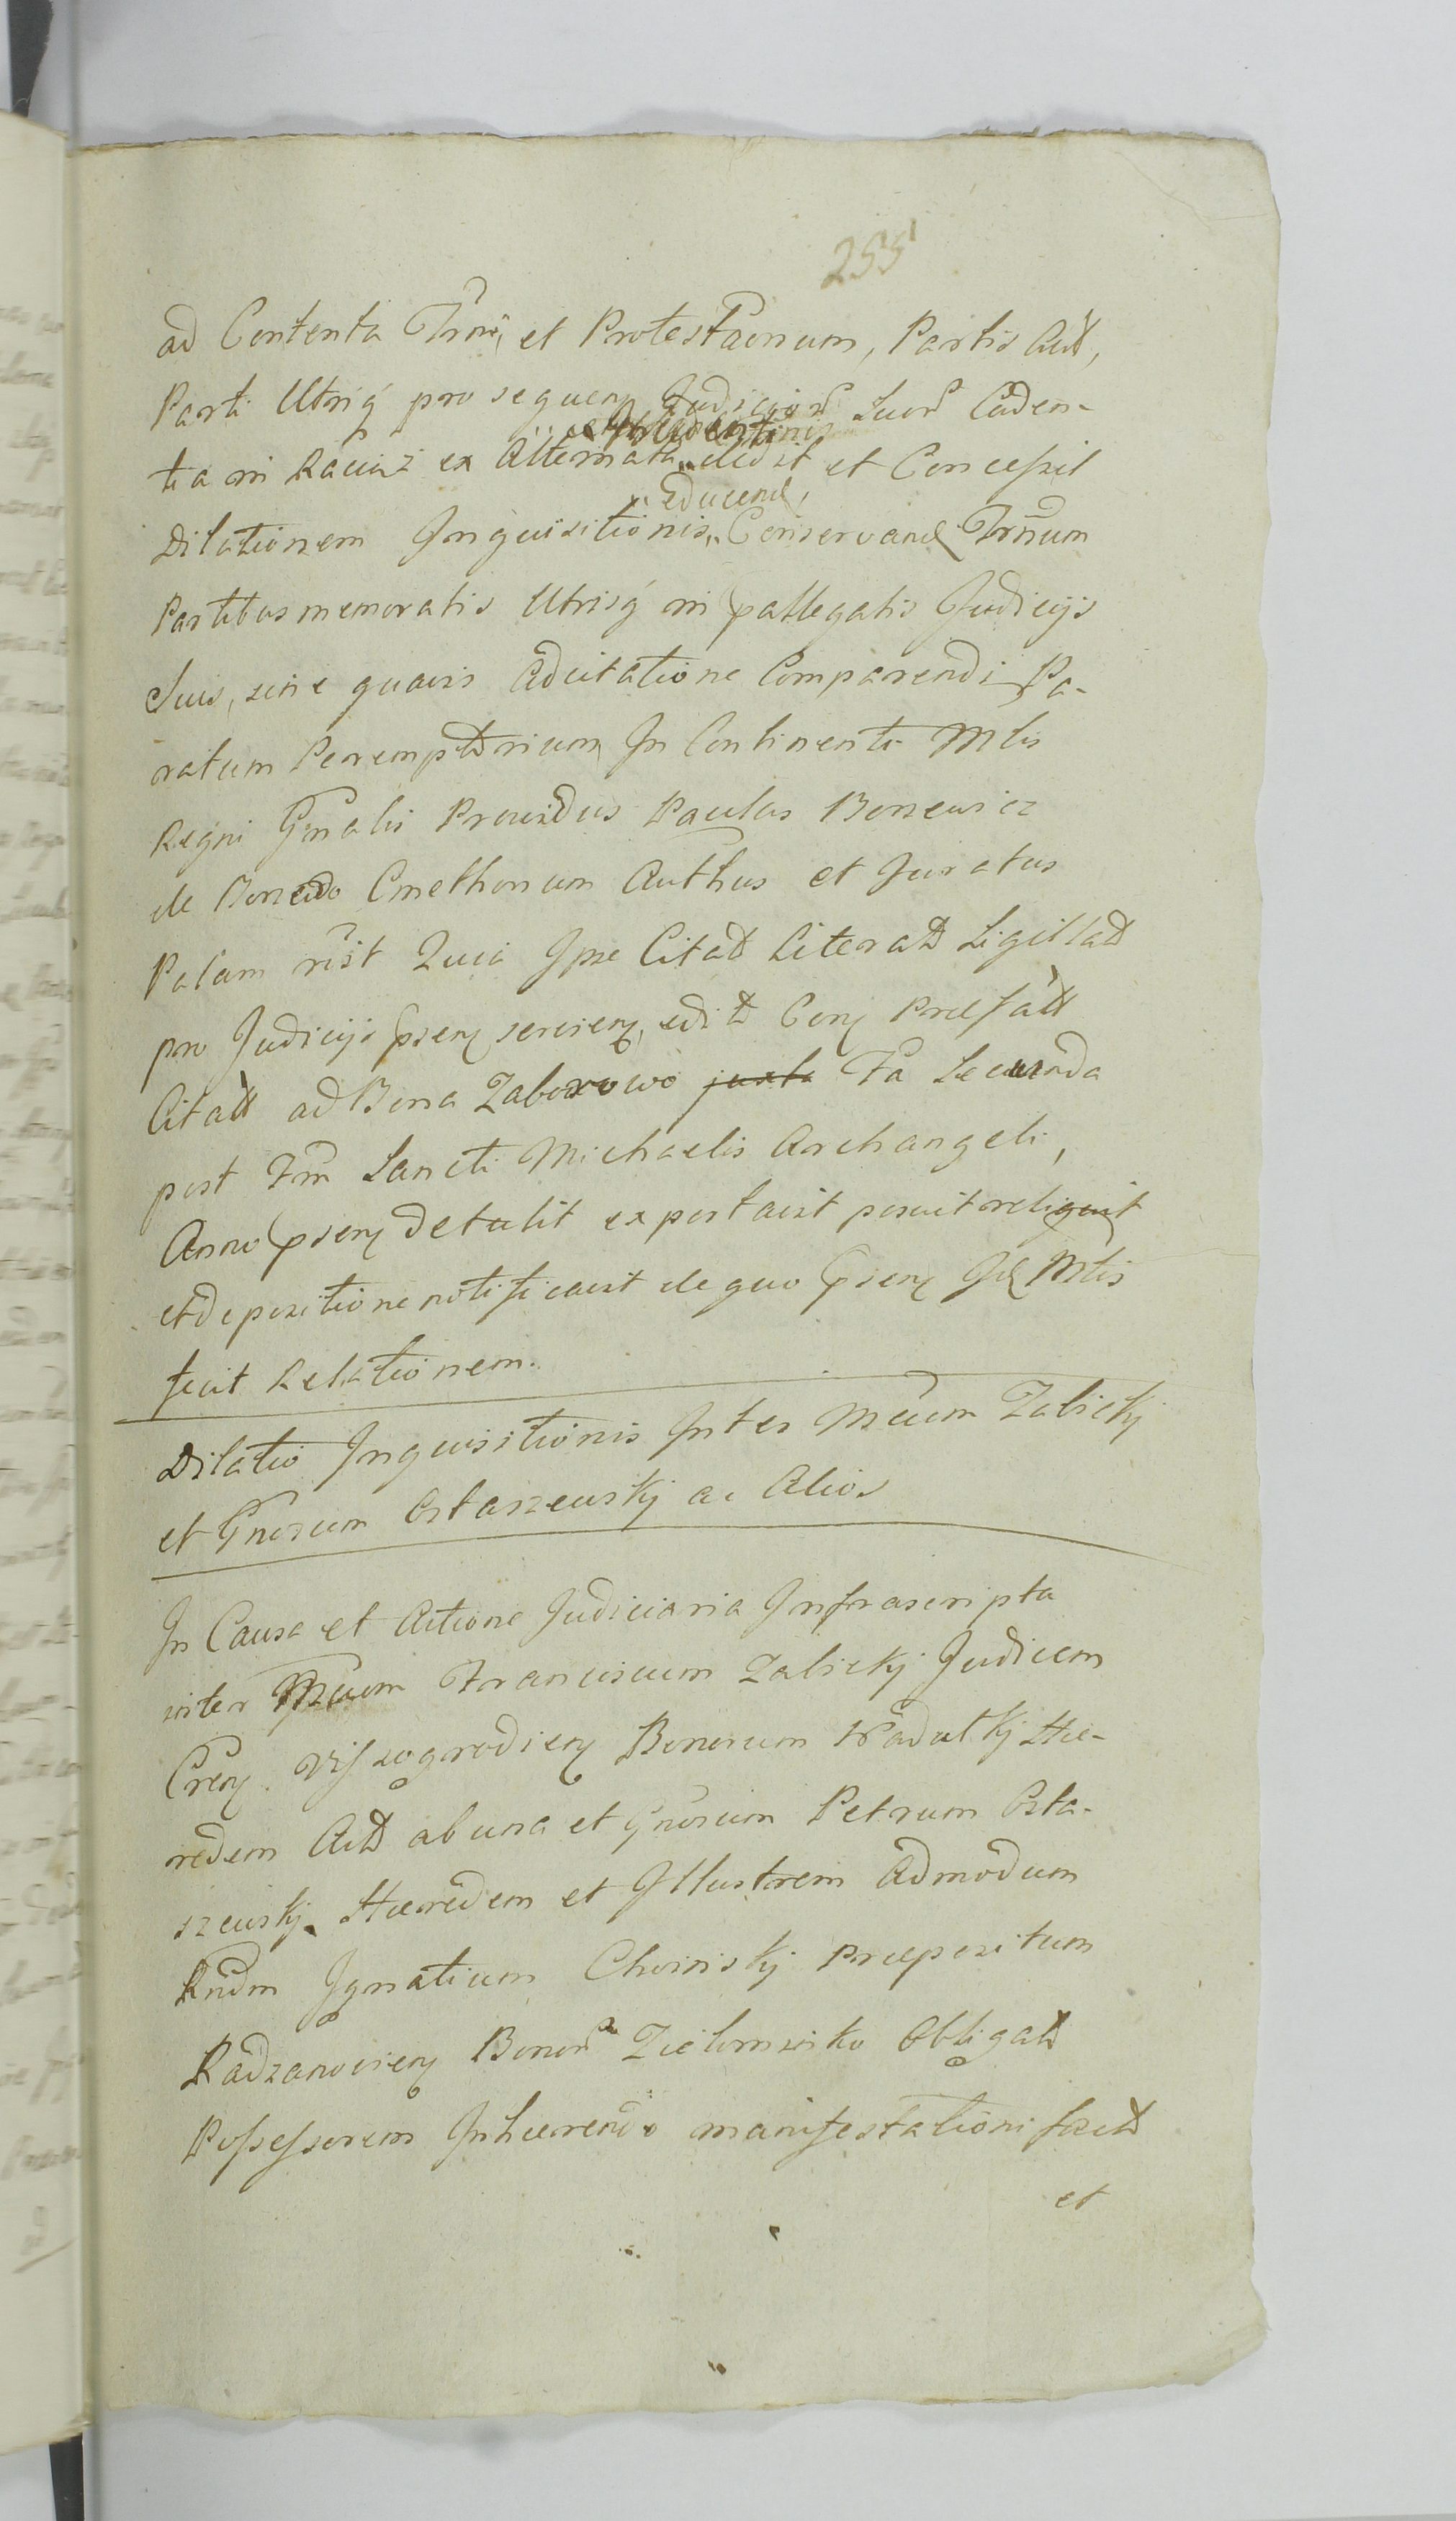 255
ad Contenta Trmi, et Protestaonum, Partis Actt,
Parti Utriq pro sequen Judicior Suor Caden-
tia in Raciąż ex Alternata dedit et Concessit
Educend,
Dilationem Inquisitionis Conservand Trnum
Partibus memoratis Utrisq in pallegatis Judicijs
Suis, sine quavis Adcitatione Comparendi Pa-
ratum Peremptorium In Continenti Mtis
Regni Gnalis Providus Paulus Borzewicz
de Cmethonum Authus et Juratus
Palam rist Quia Ipse Citatt Literatt Sigillatt
pro Judicijs psen servien, editt Con Praefatt
Citatt ad Bona Zaborowo juxta Fa Secunda
post Fm Sancti Michaelis Archangeli,
Anno psen detulit exportavit posuit reliquit
et depositione notificavit de quo psen Id Mtis
fecit Relationem.
Dilatio Inquisitionis Inter Mcum Zalickj
et Gnosum Ostaszewskj ac Alios
In Causa et Actione Judiciaria Infrascripta
inter Mcum Franciscum Zalickj Judicem
Cren Vissogrodien Bonorum Hae-
redem Actt ab una et Gnosum Petrum Osta-
szewskj Haeredem et Illustrem Admodum
Rndm Ignatium Choinskj Praepositum
Radzanovien Bonor Obligatt
Possessorem Inhaerendo manifestationi factt
et